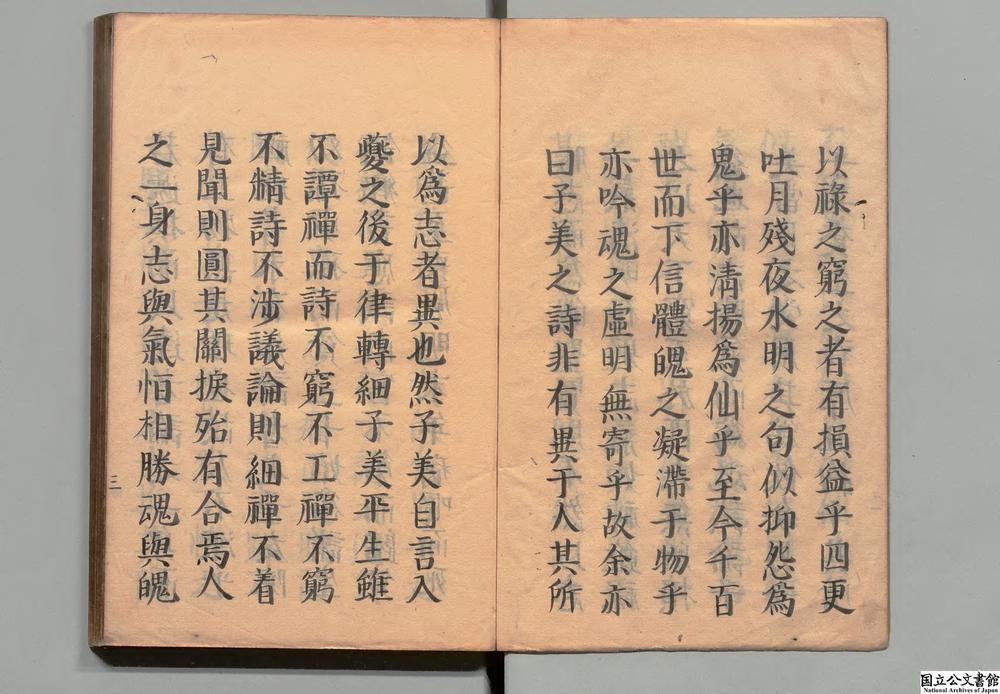 以祿之窮之者有損益乎四更
吐月殘夜水明之句似抑怨爲
鬼乎亦淸揚爲仙乎至今千百
世而下信體魄之凝滯于物乎
亦吟魂之虛明無寄乎故余亦
曰子美之詩非有異于人其所
以爲志者異也然子美自言入
夔之後于律轉細子美平生雖
不譚禪而詩不窮不工禪不窮
不精詩不涉議論則細禪不着
見聞則圓其關捩殆有合焉人
之一身志與氣恒相勝魂與魄
三
国立公文書館
National Archives of Japan